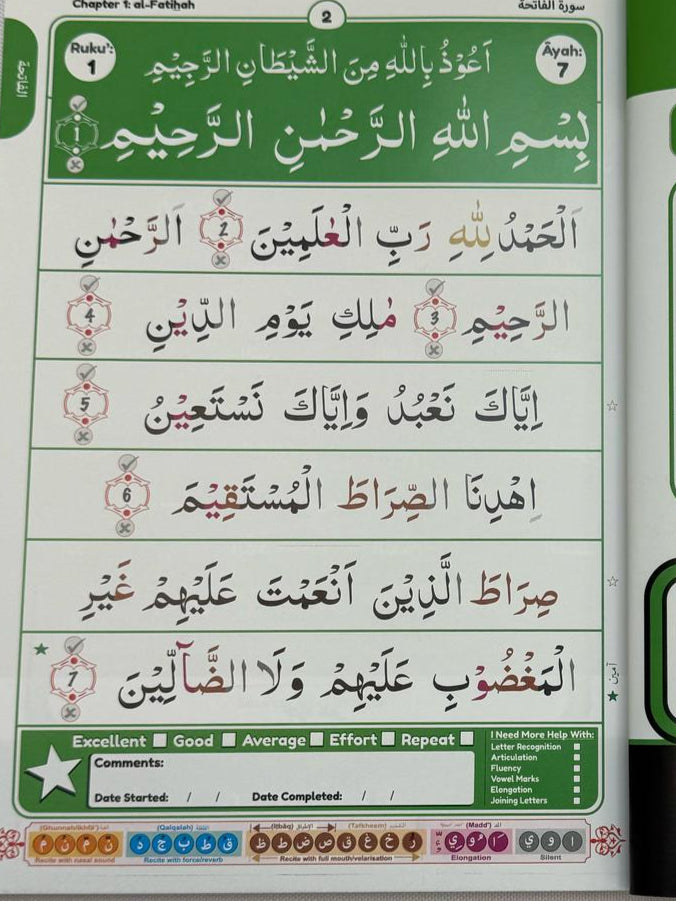 Chapter 1: al-Fatiḥah
2
سورة الفاتحة
الفاتحة
Ruku': 1
اَعُوْذُ بِاللّٰهِ مِنَ الشَّيْطَانِ الرَّجِيْمِ
Âyah: 7
بِسْمِ اللّٰهِ الرَّحْمٰنِ الرَّحِيْمِ 1
اَلْحَمْدُ لِلّٰهِ رَبِّ الْعٰلَمِيْنَ 2 اَلرَّحْمٰنِ
الرَّحِيْمِ 3 مٰلِكِ يَوْمِ الدِّيْنِ 4
اِيَّاكَ نَعْبُدُ وَاِيَّاكَ نَسْتَعِيْنُ 5
اِهْدِنَا الصِّرَاطَ الْمُسْتَقِيْمَ 6
صِرَاطَ الَّذِيْنَ اَنْعَمْتَ عَلَيْهِمْ غَيْرِ
الْمَغْضُوْبِ عَلَيْهِمْ وَلَا الضَّآلِّيْنَ 7
آمين
Excellent Good Average Effort Repeat
Comments:
Date Started: / / Date Completed: / /
I Need More Help With:
Letter Recognition
Articulation
Fluency
Vowel Marks
Elongation
Joining Letters
(Ghunnah/Ikhfa') (Qalqalah) (Iṭbâq) (Tafkheem) (Madd')
م ن م ن ق ط ب ج د ر خ غ ق ص ض ط ظ ا و ي
Recite with nasal sound Recite with force/reverb Recite with full mouth/velarisation Elongation Silent